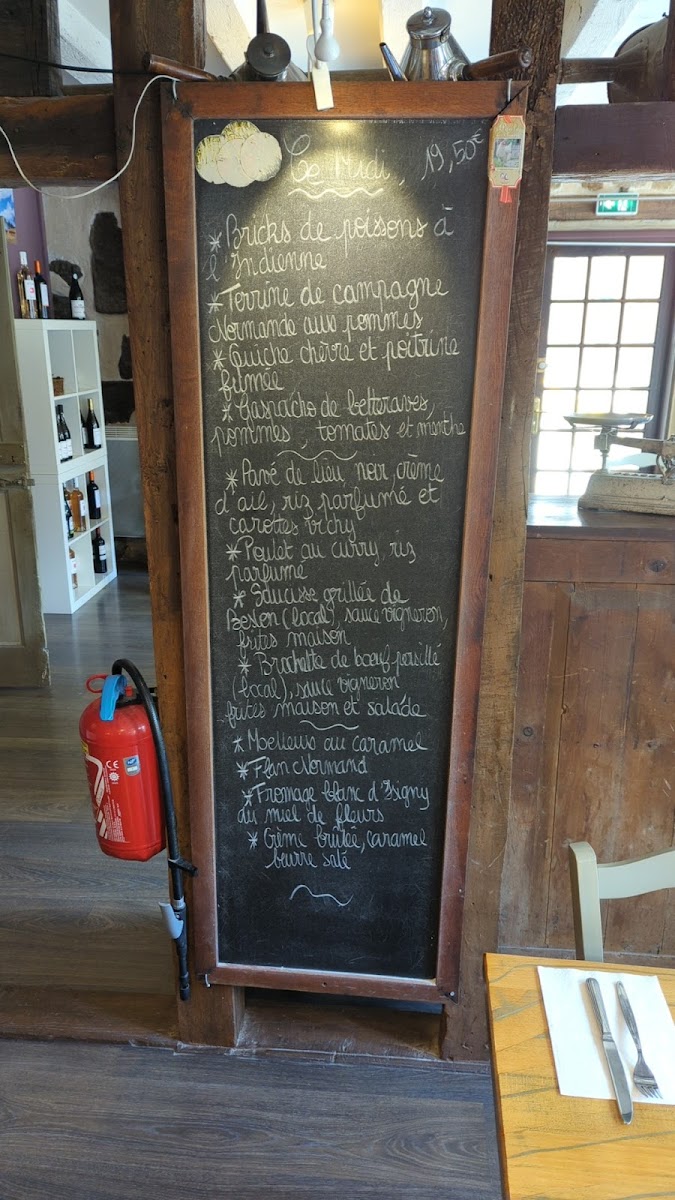 Ce Midi, 19,50€
* Bricks de poissons à
l'Indienne
* Terrine de campagne
Normande aux pommes
* Quiche chèvre et poitrine
fumée
* Gaspacho de betteraves,
pommes, tomates et menthe
* Pavé de lieu noir, crème
d'ail, riz parfumé et
carottes vichy
* Poulet au curry, riz
parfumé
* Saucisse grillée de
(local), sauce vigneron,
frites maison
* Brochette de bœuf persillé
(local), sauce vigneron
frites maison et salade
* Moelleux au caramel
* Flan Normand
* Fromage blanc d'Isigny
au miel de fleurs
* Crème brûlée, caramel
beurre salé